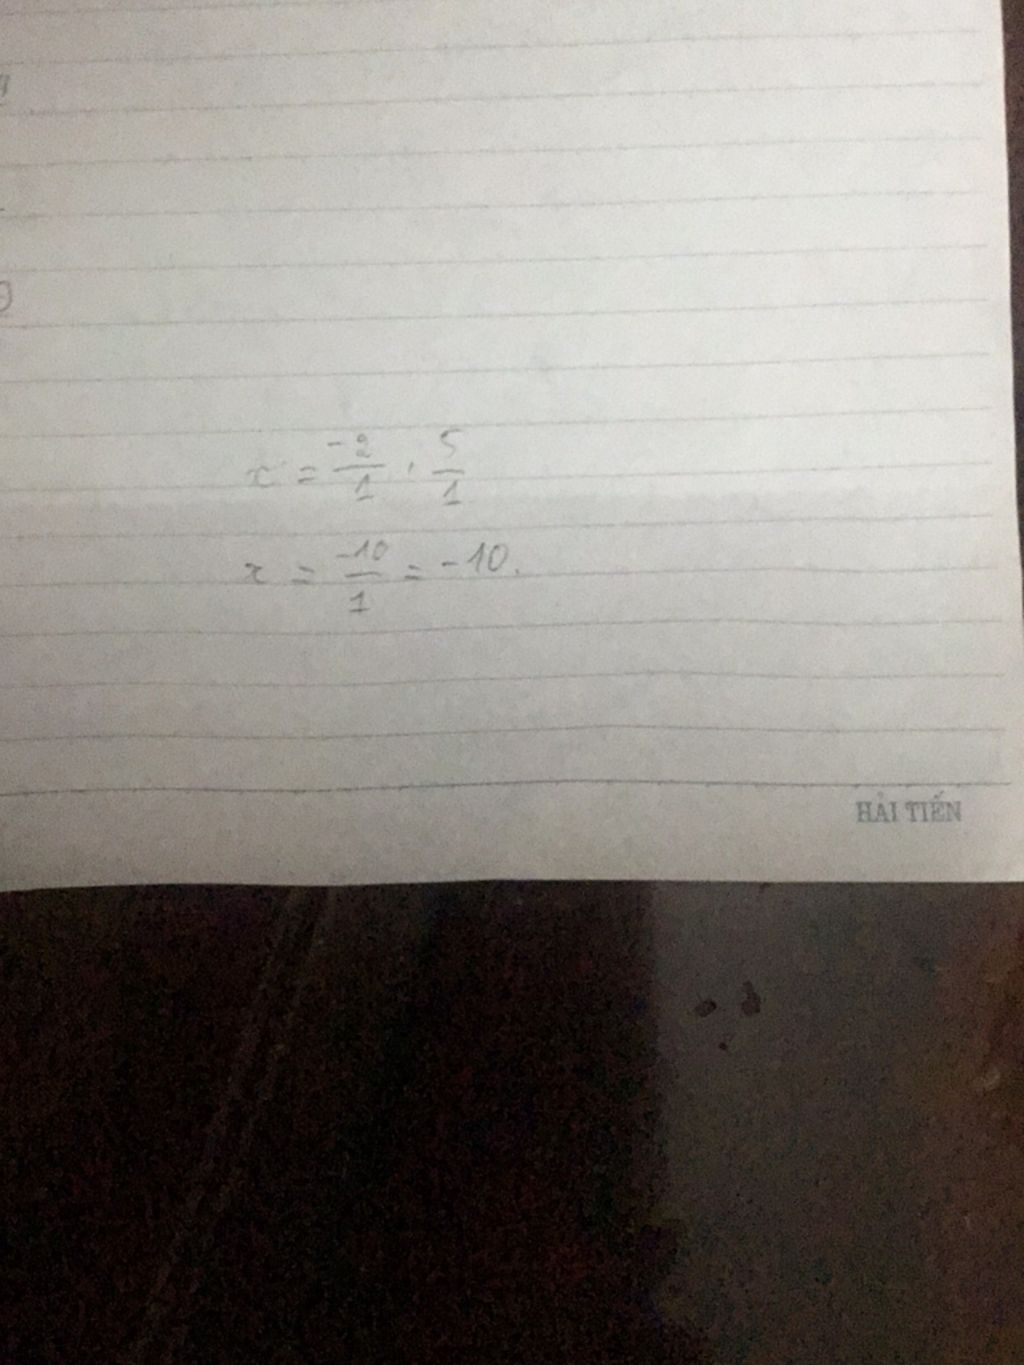 x = -2/1 . 5/1
x = -10/1 = -10.
HẢI TIẾN